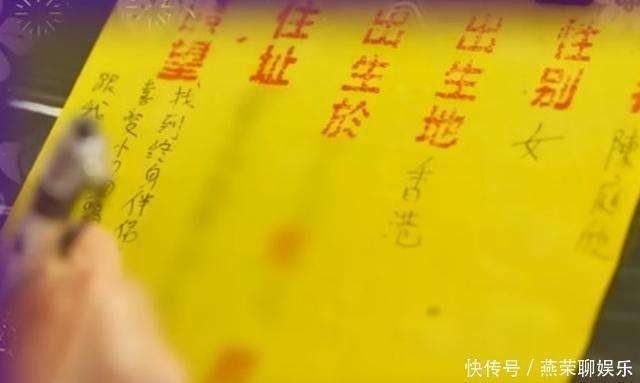 陳庭
性別
女
出生地
香港
出生於
住址
望
找到終身伴侶
跟我
快传号 / 燕荣聊娱乐